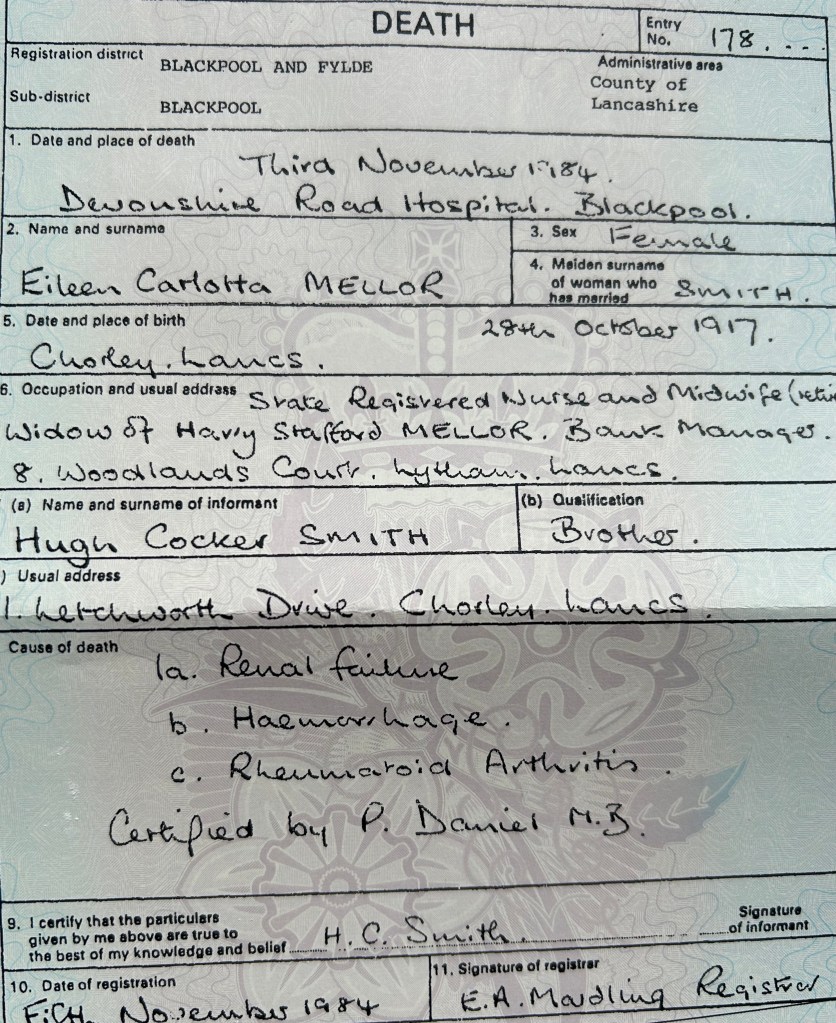 DEATH
Entry No. 178. ...
Registration district BLACKPOOL AND FYLDE
Administrative area
County of
Lancashire
Sub-district BLACKPOOL
1. Date and place of death
Third November 1984.
Devonshire Road Hospital. Blackpool.
2. Name and surname
Eileen Carlotta MELLOR
3. Sex Female
4. Maiden surname of woman who has married SMITH.
5. Date and place of birth 28th October 1917.
Chorley. Lancs.
6. Occupation and usual address State Registered Nurse and Midwife (retir
Widow of Harry Stafford MELLOR. Bank Manager.
8. Woodlands Court. Lytham. Lancs.
(a) Name and surname of informant
Hugh Cocker SMITH
(b) Qualification
Brother.
) Usual address
1. Letchworth Drive. Chorley. Lancs.
Cause of death
1a. Renal failure
b. Haemorrhage.
c. Rheumatoid Arthritis.
Certified by P. Daniel M.B.
9. I certify that the particulars
given by me above are true to
the best of my knowledge and belief H. C. Smith. Signature
of informant
10. Date of registration
Fifth November 1984
11. Signature of registrar
E.A. Maudling Registrar